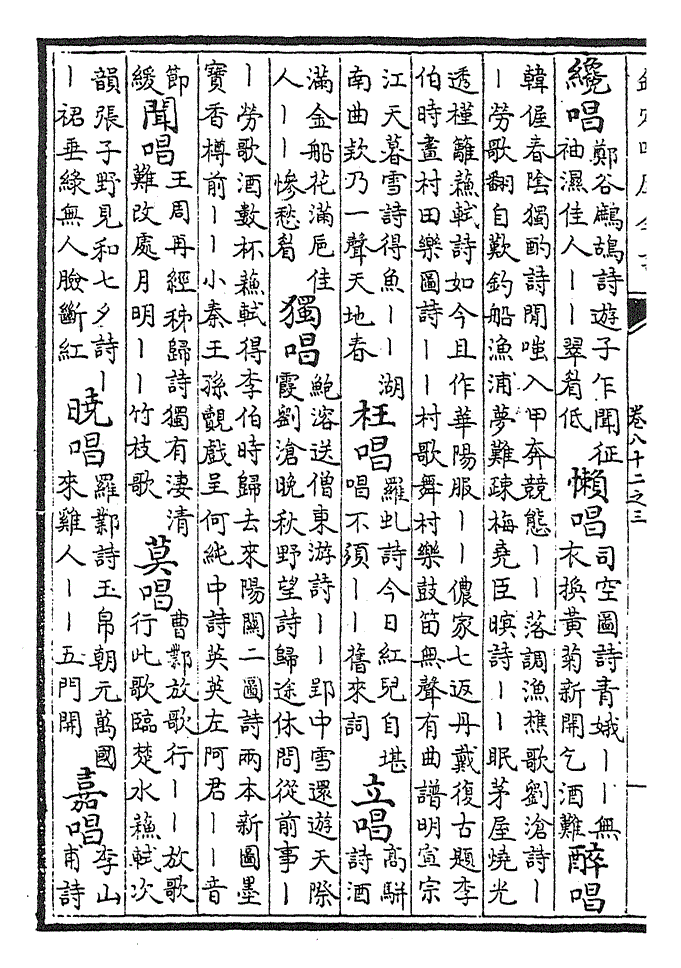 卷八十二之三
纔唱
鄭谷鷓鴣詩遊子乍聞征
袖濕佳人丨丨翠眉低
懶唱
司空圖詩青娥丨丨無
衣換黃菊新開乞酒難
醉唱
韓偓春陰獨酌詩閒嗤入甲奔競態丨丨落調漁樵歌劉滄詩丨
丨勞歌翻自歎釣船漁浦夢難疎梅堯臣暝詩丨丨眠茅屋燒光
透槿籬蘇軾詩如今且作華陽服丨丨儂家七返丹戴復古題李
伯時畫村田樂圖詩丨丨村歌舞村樂鼓笛無聲有曲譜明宣宗
江天暮雪詩得魚丨丨湖
南曲欸乃一聲天地春
枉唱
羅虬詩今日紅兒自堪
唱不須丨丨舊來詞
立唱
高駢
詩酒
滿金船花滿巵佳
人丨丨慘愁眉
獨唱
鮑溶送僧東游詩丨丨郢中雪還遊天際
霞劉滄晚秋野望詩歸途休問從前事丨
丨勞歌酒數杯蘇軾得李伯時歸去來陽關二圖詩兩本新圖墨
寶香樽前丨丨小秦王孫覿戲呈何純中詩英英左阿君丨丨音
節
緩
聞唱
王周再經秭歸詩獨有淒清
難改處月明丨丨竹枝歌
莫唱
曹鄴放歌行丨丨放歌
行此歌臨楚水蘇軾次
韻張子野見和七夕詩丨
丨裙垂綠無人臉斷紅
曉唱
羅鄴詩玉帛朝元萬國
來雞人丨丨五門開
嘉唱
李山
甫詩